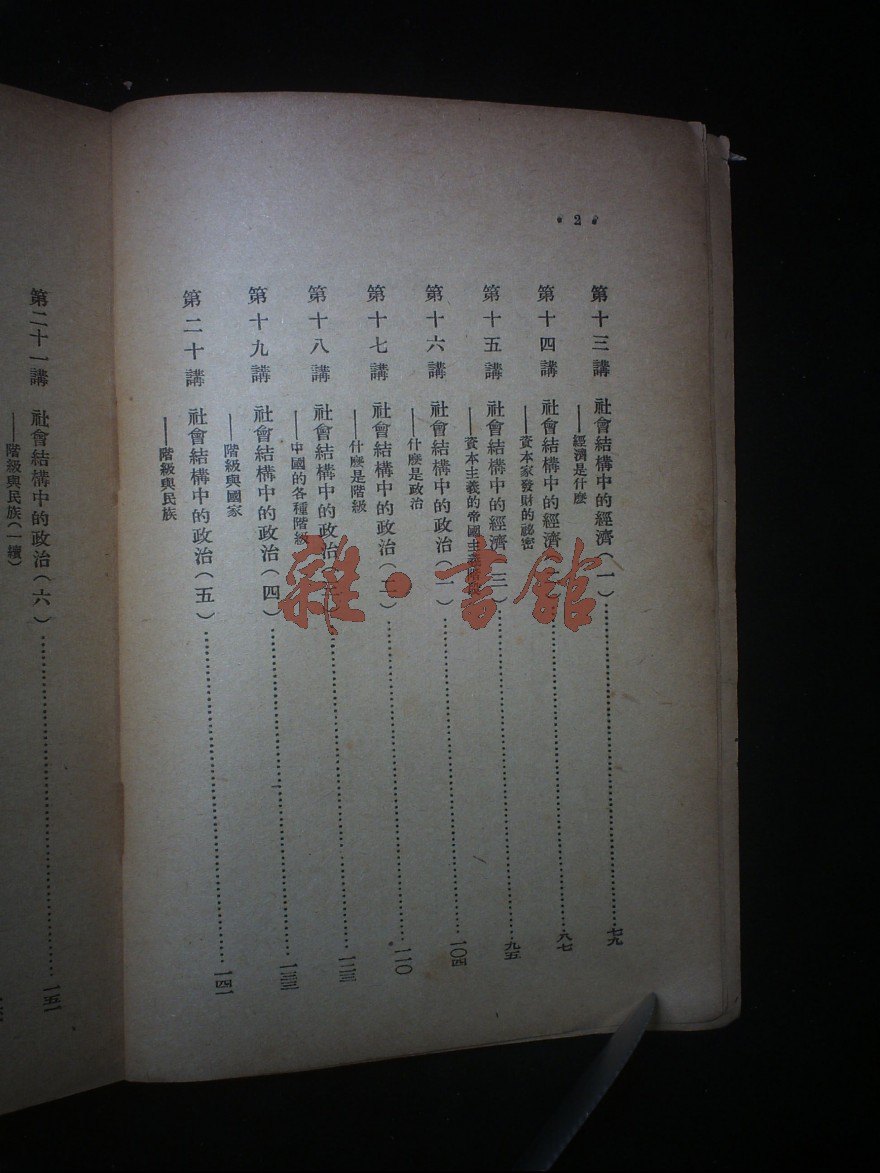 • 2 •
第十三講 社會結構中的經濟(一)……七九
——經濟是什麼
第十四講 社會結構中的經濟……八七
——資本家發財的祕密
第十五講 社會結構中的經濟(三)……九五
——資本主義的帝國主義階段
第十六講 社會結構中的政治(一)……一〇四
——什麼是政治
第十七講 社會結構中的政治(二)……一一〇
——什麼是階級
第十八講 社會結構中的政治……一二三
——中國的各種階級
第十九講 社會結構中的政治(四)……一三三
——階級與國家
第二十講 社會結構中的政治(五)……一四一
——階級與民族
第二十一講 社會結構中的政治(六)……一五一
——階級與民族(一續)
雜·書館